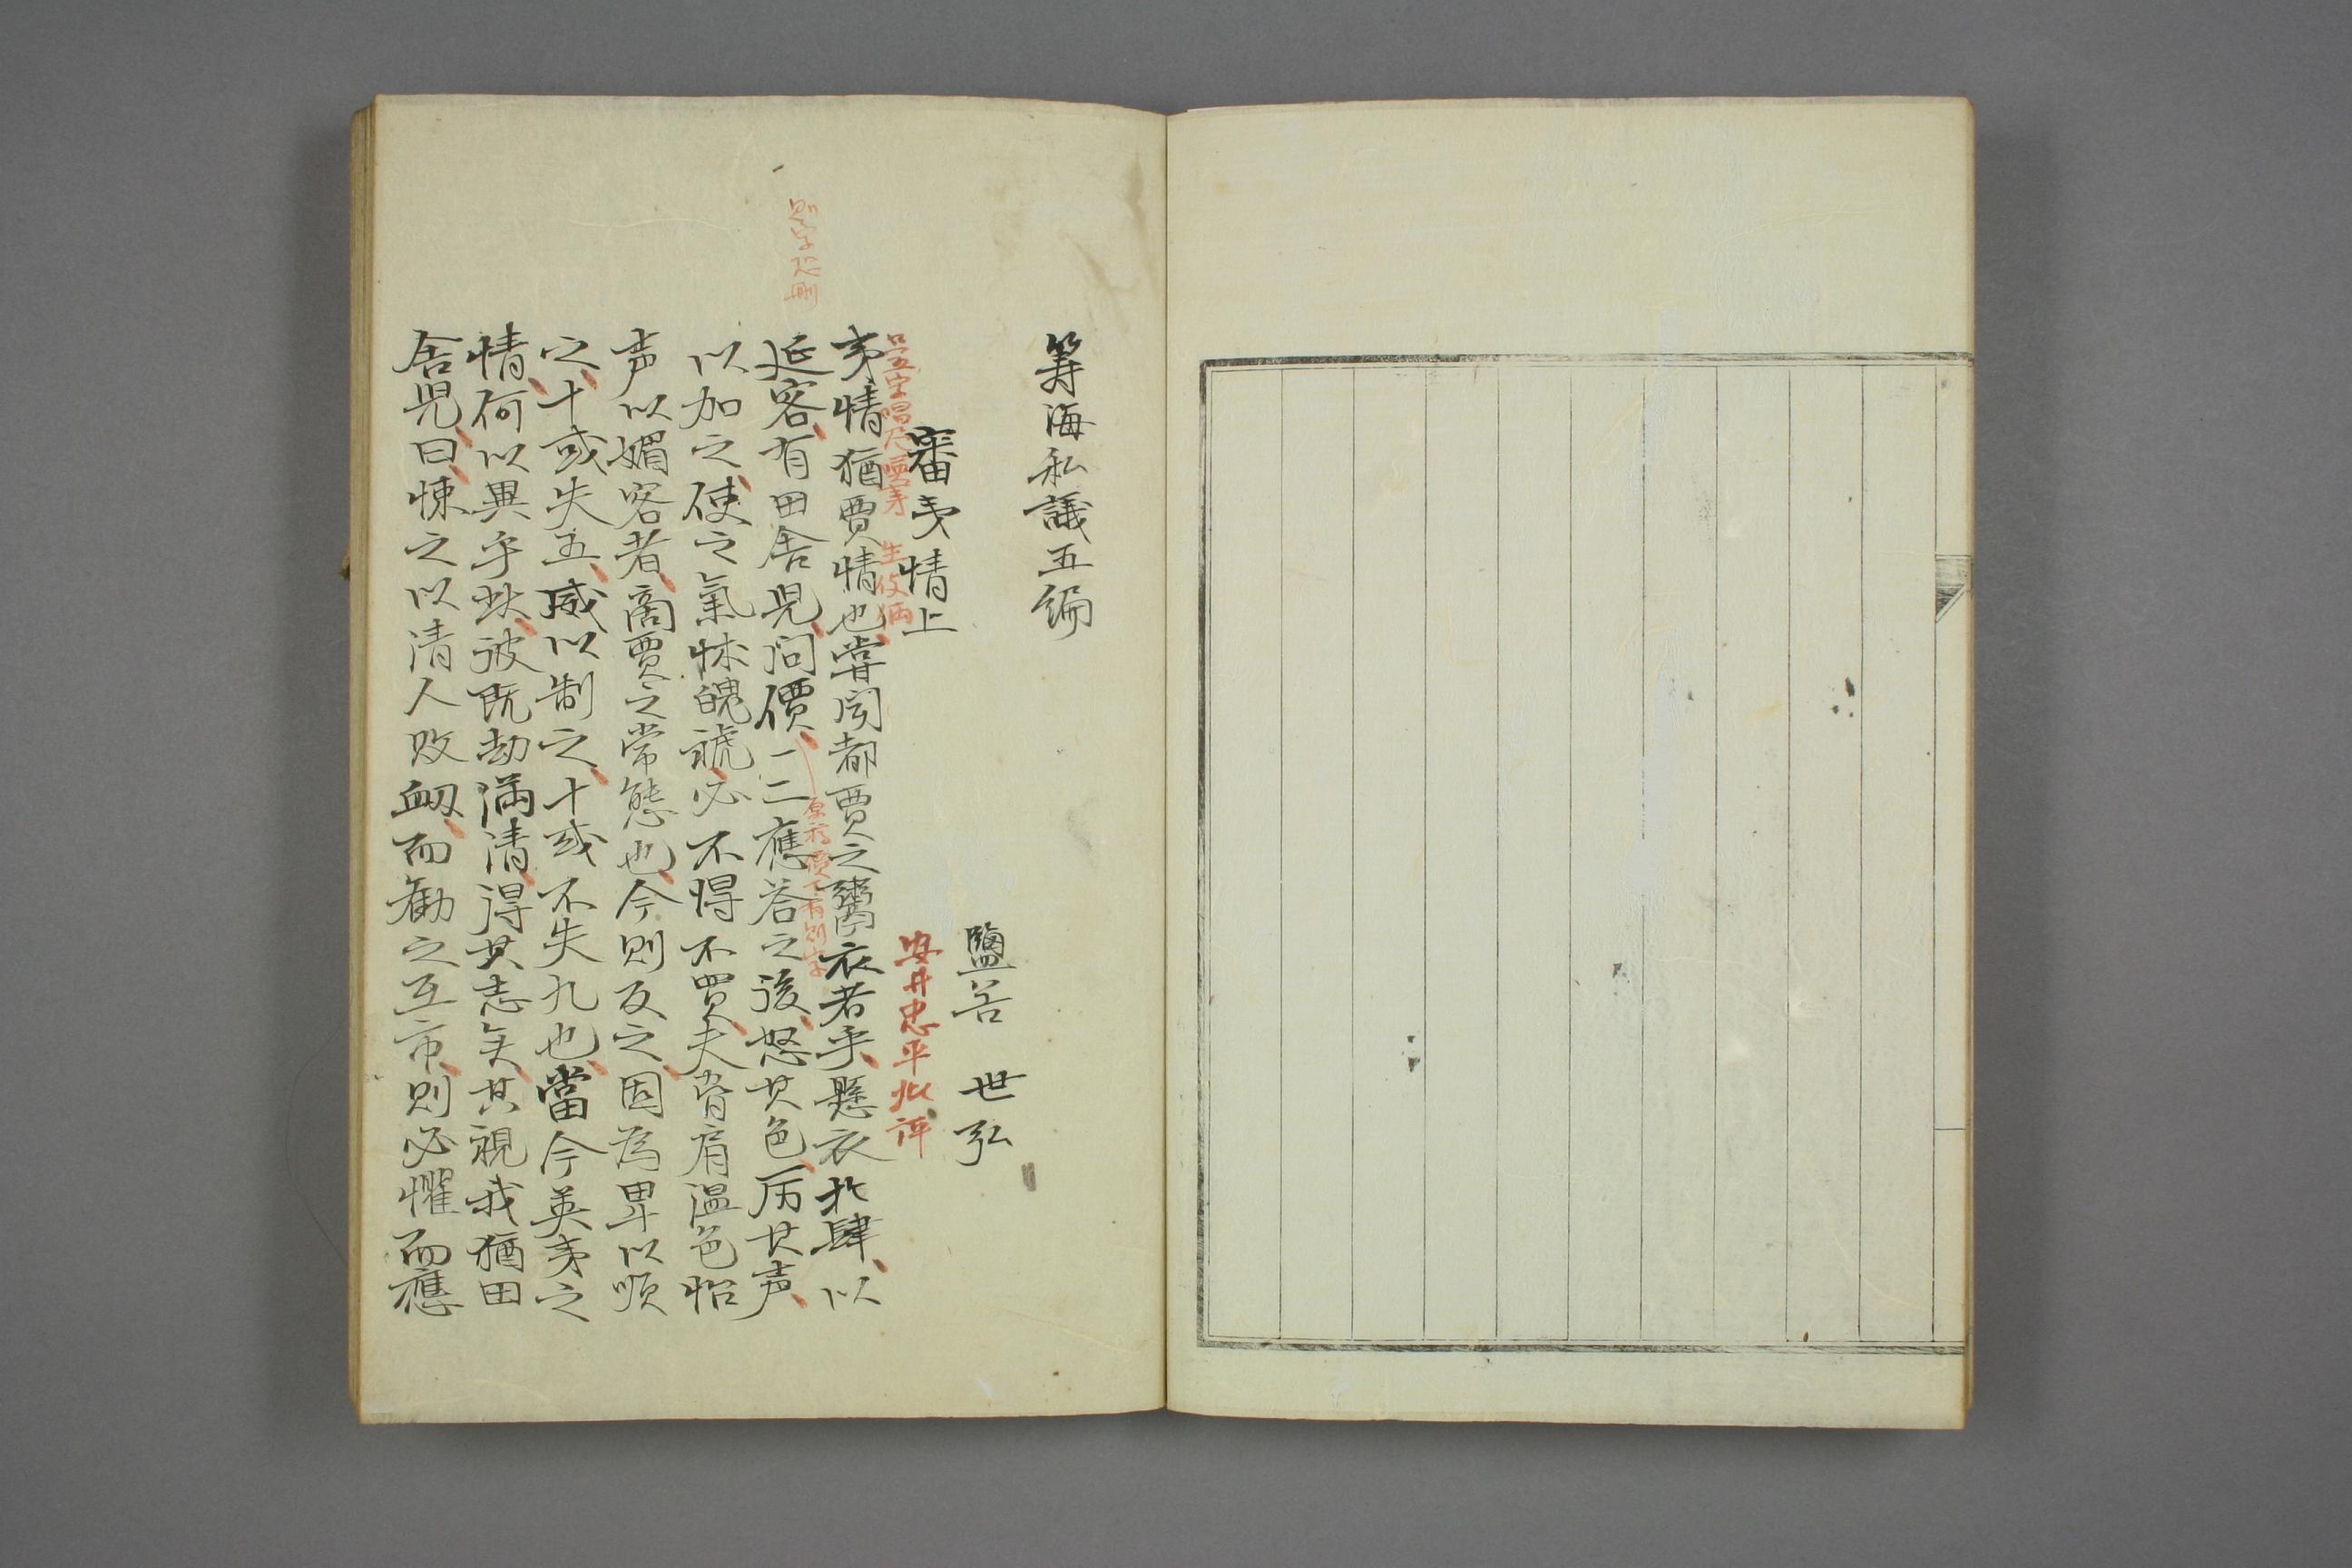 籌海私議五編
鹽谷 世弘
審夷情上
安井忠平批評
夷情猶賈情也嘗聞都賈之鬻衣者乎、懸衣於肆、以
延客、有田舍児、問價、一二應荅之後、怒其色、厉其声、
以加之、使之氣怵魄褫、必不得不買、夫脅肩温色怡
声以媚客者、商賈之常態也、今則反之、因為卑以順
之、十或失五、威以制之、十或不失九也、當今英夷之
情、何以異乎玆、彼既劫満清、得其志矣、其視我猶田
舎児、曰、悚之以清人敗衂、而勧之互市、則必懼而應
則字恐刪
原稿價下有則字